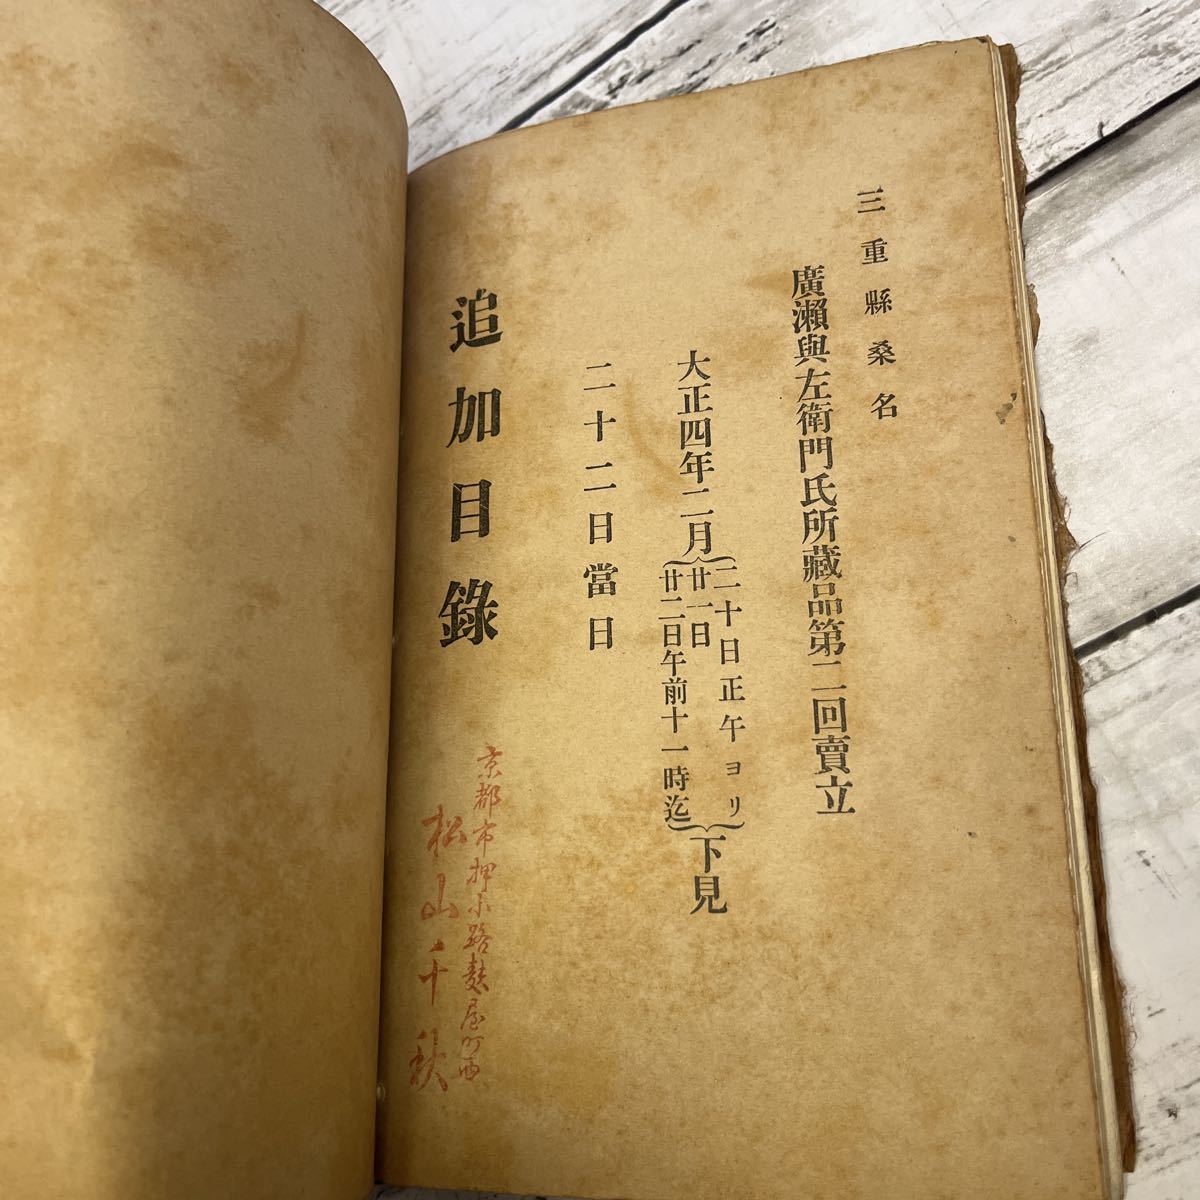 三重縣桑名
廣瀨與左衛門氏所藏品第二回賣立
大正四年二月
二十日正午ヨリ
廿一日
廿二日午前十一時迄
下見
二十二日當日
追加目錄
京都市押小路麩屋町西
松山千秋